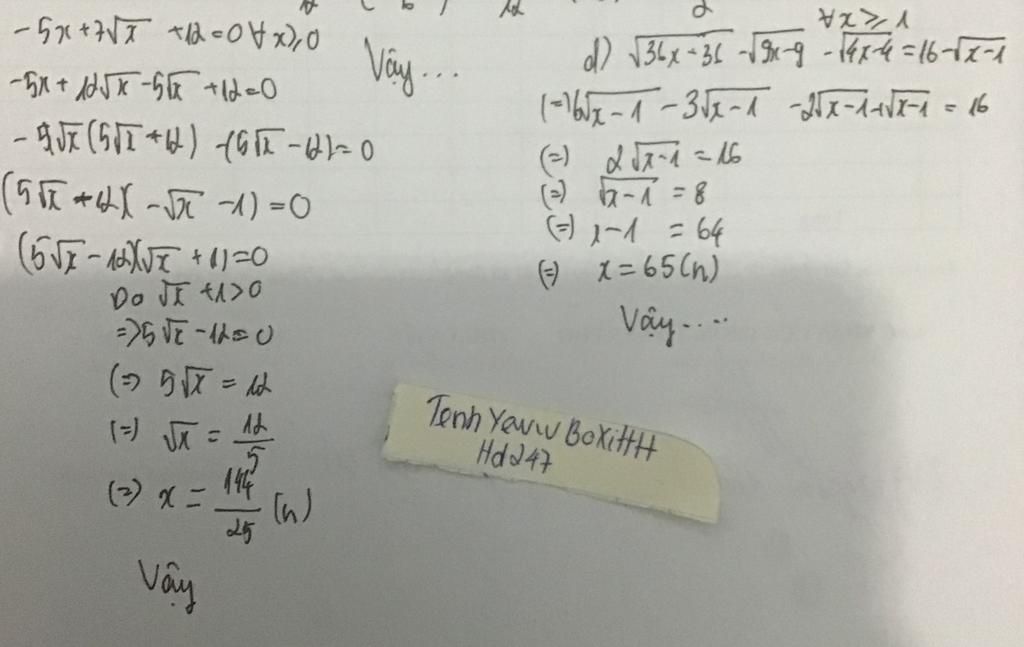 -5x+7√x +12=0 ∀x≥0
-5x+12√x-5√x+12=0
(5√x-12)(√x+1)=0
Do √x+1>0
=>5√x-12=0
(=) 5√x = 12
(=) √x = 12/5
(=) x = 144/25 (n)
Vậy
Vậy...
∀x≥1
d) √36x-36 -√9x-9 -√4x-4=16-√x-1
(=)6√x-1 -3√x-1 -2√x-1+√x-1 = 16
(=) 2√x-1 =16
(=) √x-1 =8
(=) x-1 = 64
(=) x=65(n)
Vậy....
Tenh Yeww BoXiHH
Hd247